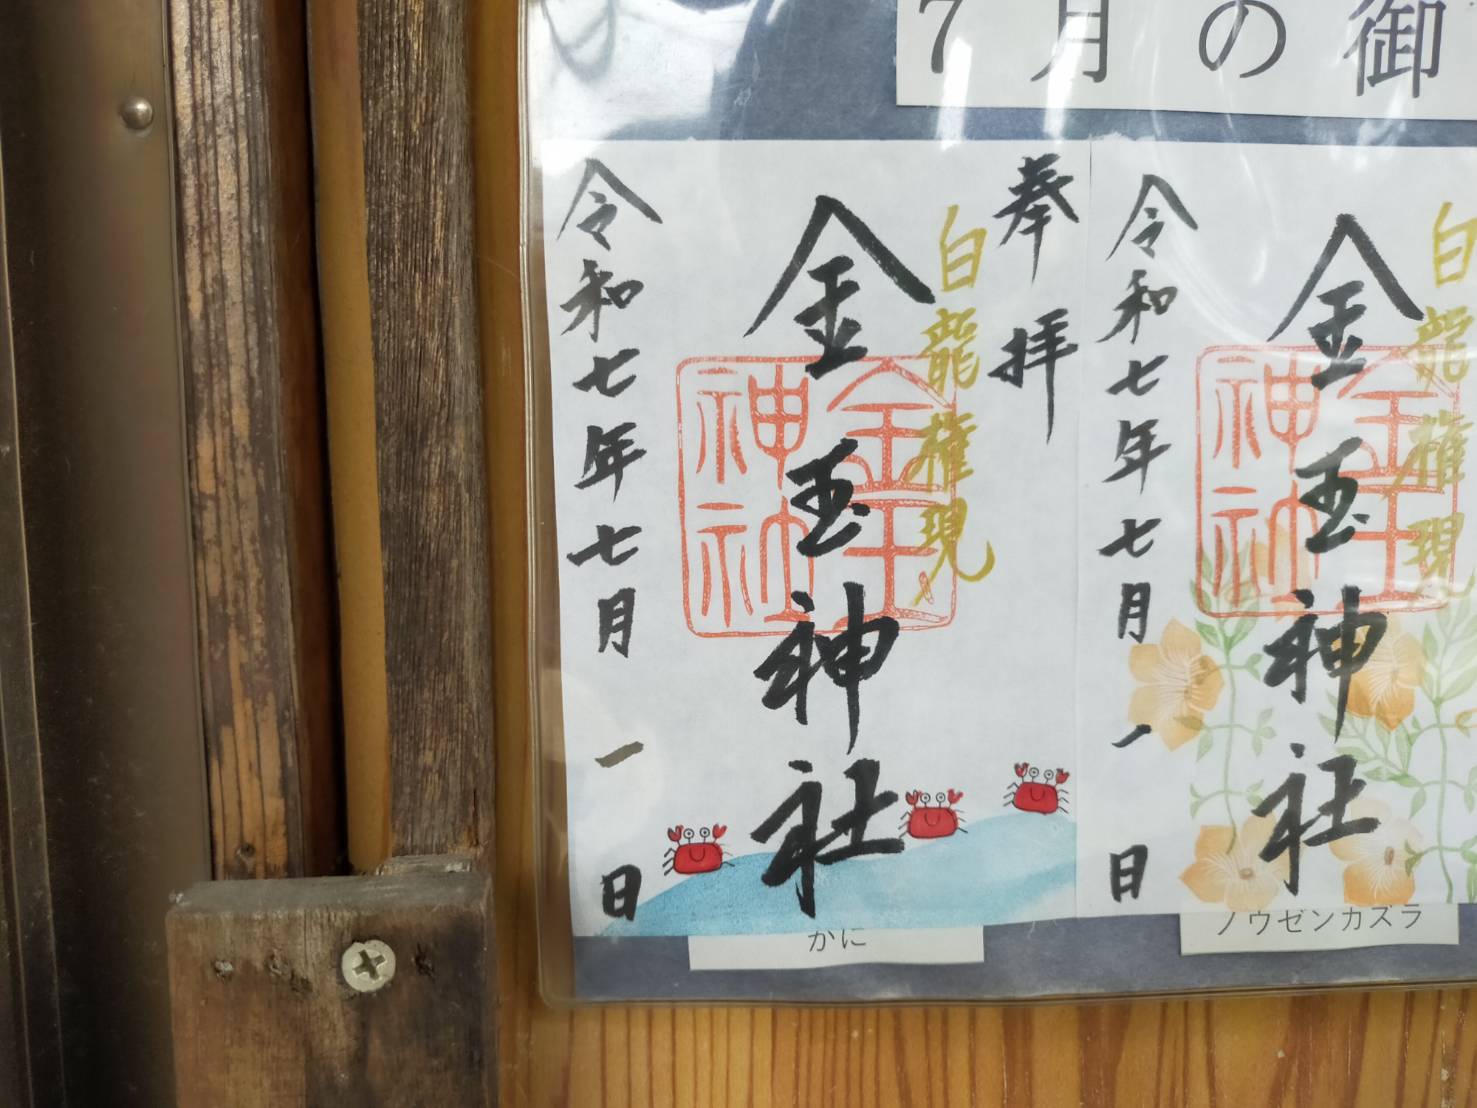 7月の御
奉拝
白龍権現
金玉神社
金玉神社
令和七年七月一日
かに
白龍権現
金玉神社
金玉神社
令和七年七月一日
ノウゼンカズラ